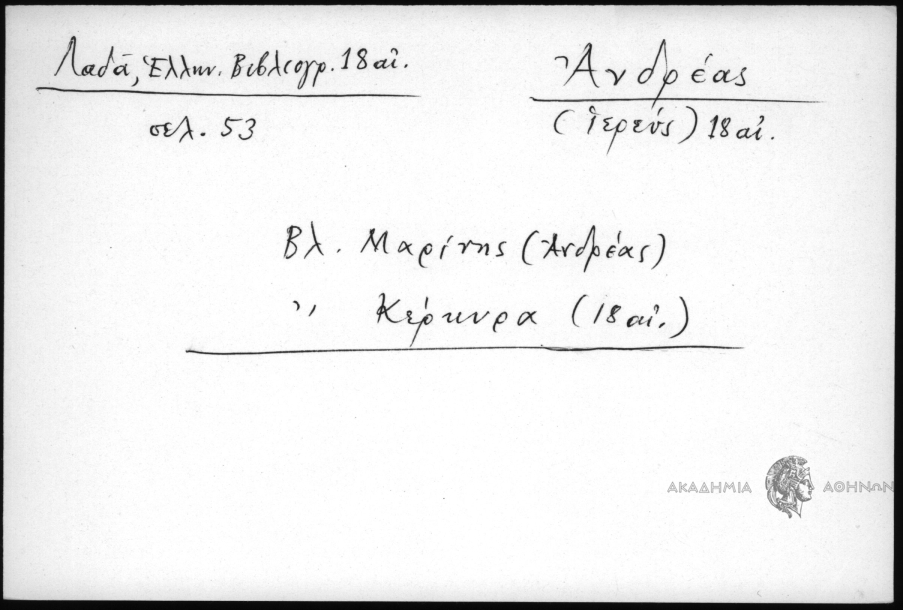 Λαδᾶ, Ἑλλην. Βιβλιογρ. 18 αἰ.
σελ. 53
Ἀνδρέας
(ἱερεύς) 18 αἰ.
Βλ. Μαρίνης (Ἀνδρέας)
〃 Κέρκυρα (18 αἰ.)
ΑΚΑΔΗΜΙΑ ΑΘΗΝΩΝ